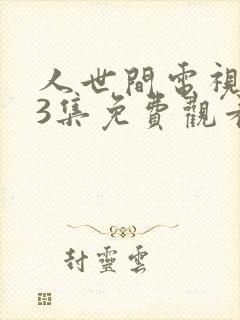 人世間電視
3集免費觀看
封靈雲